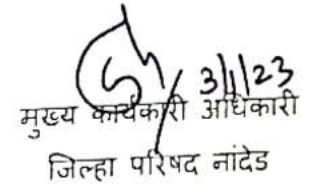 3/1/23
मुख्य कार्यकारी अधिकारी
जिल्हा परिषद नांदेड